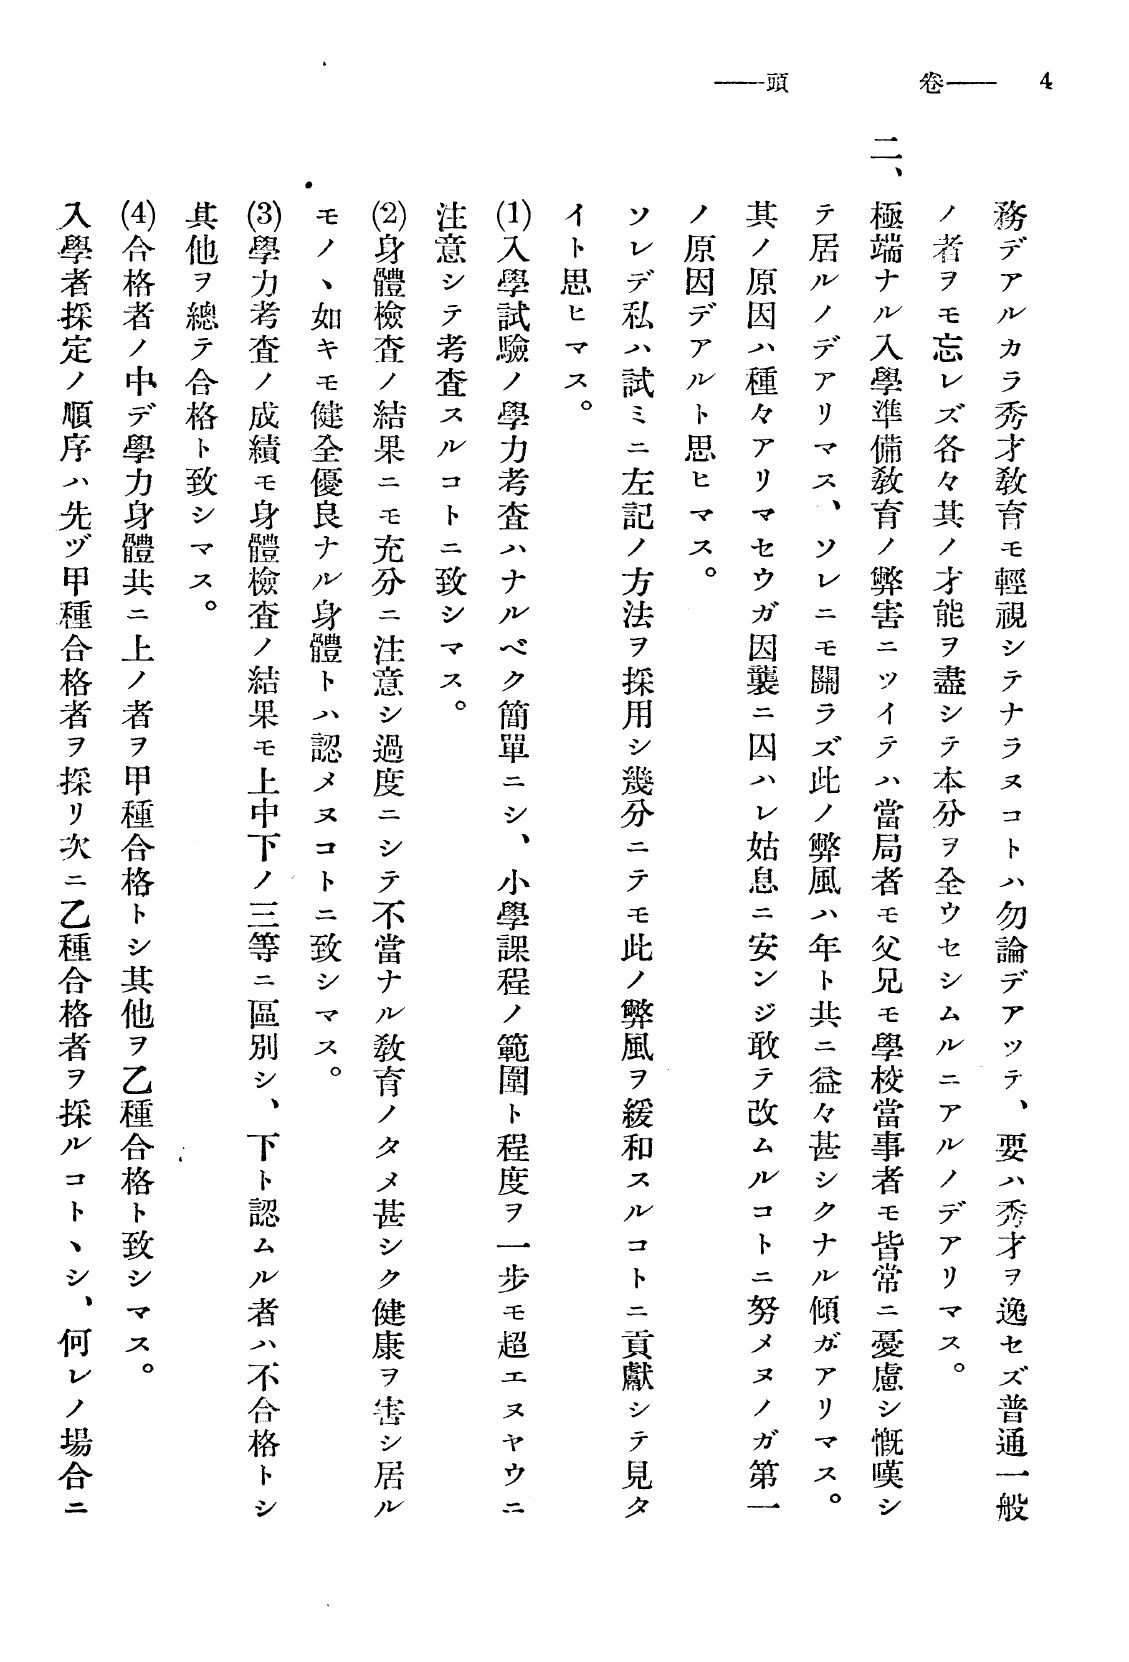 4 ——卷 頭——
務デアルカラ秀才敎育モ輕視シテナラヌコトハ勿論デアツテ、要ハ秀才ヲ逸セズ普通一般
ノ者ヲモ忘レズ各々其ノ才能ヲ盡シテ本分ヲ全ウセシムルニアルノデアリマス。
二、極端ナル入學準備敎育ノ弊害ニツイテハ當局者モ父兄モ學校當事者モ皆常ニ憂慮シ慨嘆シ
テ居ルノデアリマス、ソレニモ關ラズ此ノ弊風ハ年ト共ニ益々甚シクナル傾ガアリマス。
其ノ原因ハ種々アリマセウガ因襲ニ囚ハレ姑息ニ安ンジ敢テ改ムルコトニ努メヌノガ第一
ノ原因デアルト思ヒマス。
ソレデ私ハ試ミニ左記ノ方法ヲ採用シ幾分ニテモ此ノ弊風ヲ緩和スルコトニ貢獻シテ見タ
イト思ヒマス。
(1)入學試驗ノ學力考査ハナルベク簡單ニシ、小學課程ノ範圍ト程度ヲ一步モ超エヌヤウニ
注意シテ考査スルコトニ致シマス。
(2)身體檢査ノ結果ニモ充分ニ注意シ過度ニシテ不當ナル敎育ノタメ甚シク健康ヲ害シ居ル
モノヽ如キモ健全優良ナル身體トハ認メヌコトニ致シマス。
(3)學力考査ノ成績モ身體檢査ノ結果モ上中下ノ三等ニ區別シ、下ト認ムル者ハ不合格トシ
其他ヲ總テ合格ト致シマス。
(4)合格者ノ中デ學力身體共ニ上ノ者ヲ甲種合格トシ其他ヲ乙種合格ト致シマス。
入學者採定ノ順序ハ先ヅ甲種合格者ヲ採リ次ニ乙種合格者ヲ採ルコトヽシ、何レノ場合ニ